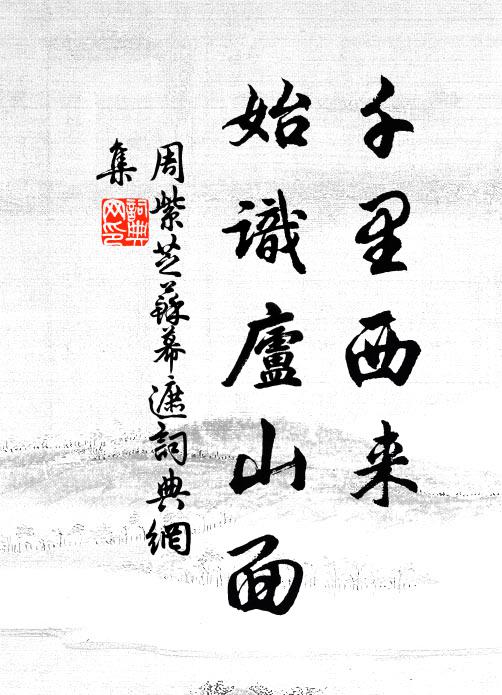 千里西来
始識廬山面
周紫芝蘇幕遮詞典網
集
詞典
网印